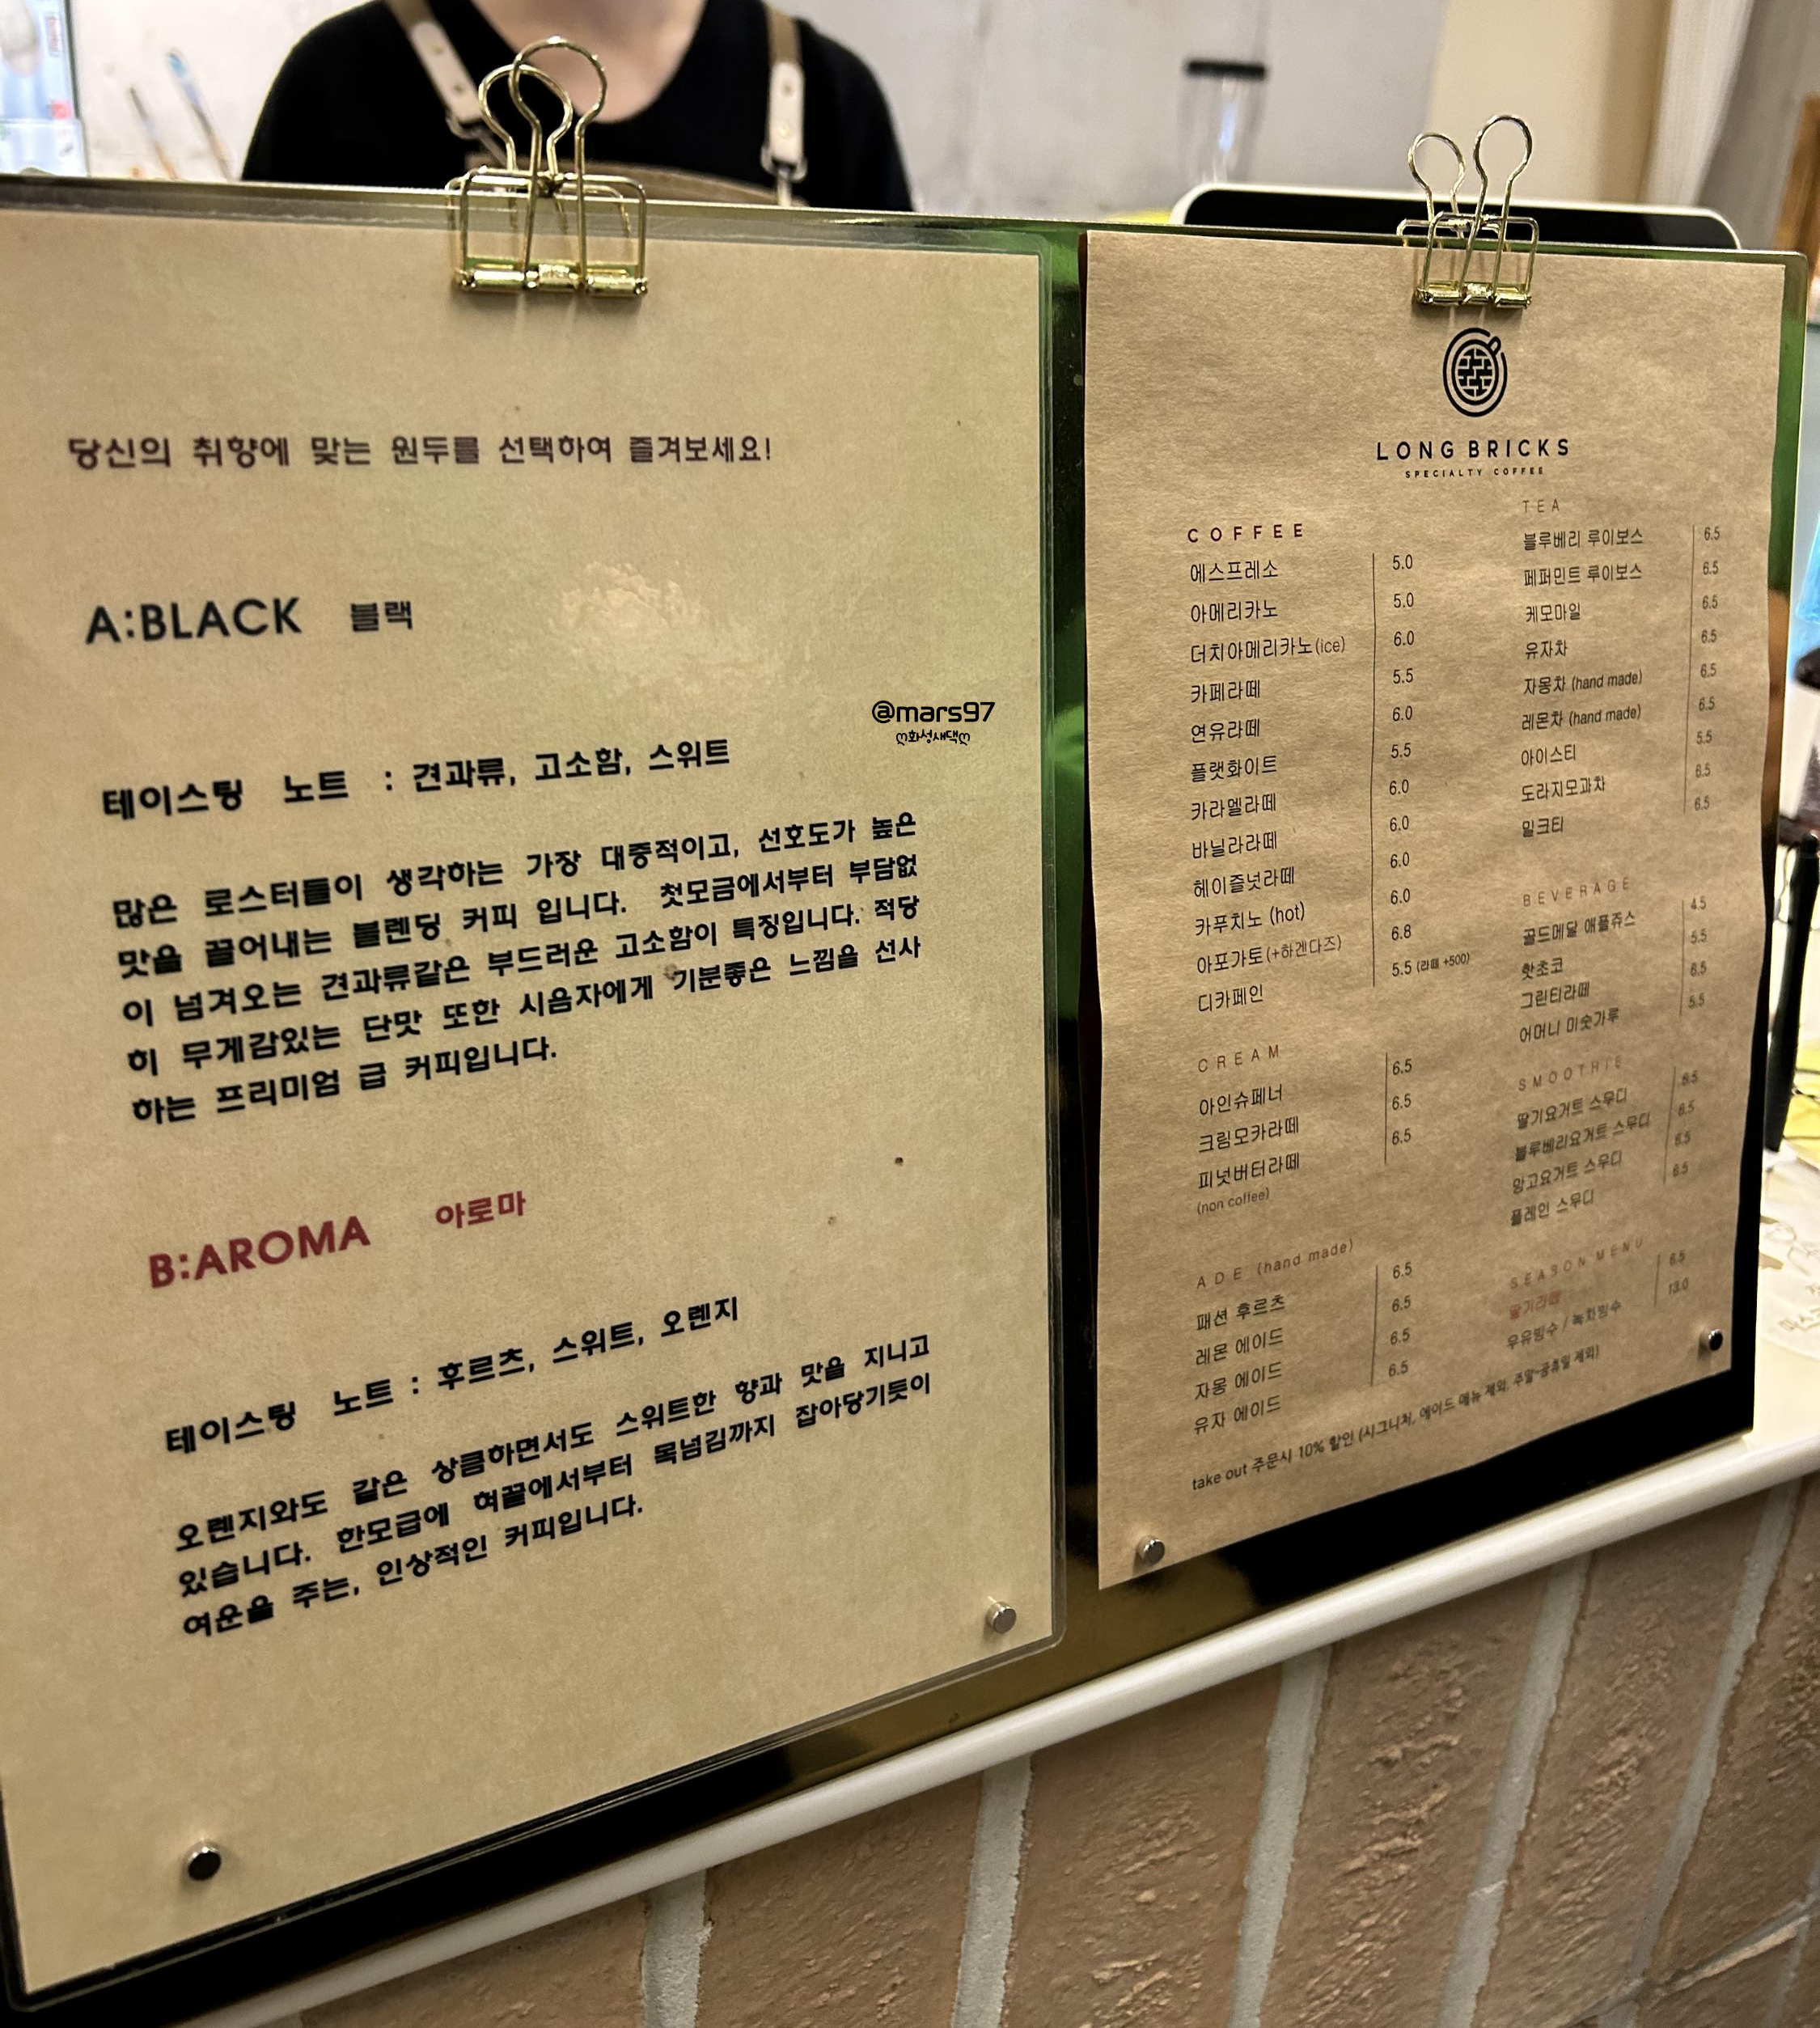 당신의 취향에 맞는 원두를 선택하여 즐겨보세요!
A:BLACK 블랙
테이스팅 노트 : 견과류, 고소함, 스위트
많은 로스터들이 생각하는 가장 대중적이고, 선호도가 높은
맛을 끌어내는 블렌딩 커피 입니다. 첫모금에서부터 부담없
이 넘겨오는 견과류같은 부드러운 고소함이 특징입니다. 적당
히 무게감있는 단맛 또한 시음자에게 기분좋은 느낌을 선사
하는 프리미엄 급 커피입니다.
B:AROMA 아로마
테이스팅 노트 : 후르츠, 스위트, 오렌지
오렌지와도 같은 상큼하면서도 스위트한 향과 맛을 지니고
있습니다. 한모금에 혀끝에서부터 목넘김까지 잡아당기듯이
여운을 주는, 인상적인 커피입니다.
@mars97
ღ화성새댁ღ
LONG BRICKS
SPECIALTY COFFEE
COFFEE
에스프레소 5.0
아메리카노 5.0
더치아메리카노(ice) 6.0
카페라떼 5.5
연유라떼 6.0
플랫화이트 5.5
카라멜라떼 6.0
바닐라라떼 6.0
헤이즐넛라떼 6.0
카푸치노 (hot) 6.0
아포가토(+하겐다즈) 6.8
디카페인 5.5 (라떼 +500)
CREAM
아인슈페너 6.5
크림모카라떼 6.5
피넛버터라떼 6.5
(non coffee)
ADE (hand made)
패션 후르츠 6.5
레몬 에이드 6.5
자몽 에이드 6.5
유자 에이드 6.5
TEA
블루베리 루이보스 6.5
페퍼민트 루이보스 6.5
케모마일 6.5
유자차 6.5
자몽차 (hand made) 6.5
레몬차 (hand made) 6.5
아이스티 5.5
도라지모과차 6.5
밀크티 6.5
BEVERAGE
골드메달 애플쥬스 4.5
핫초코 5.5
그린티라떼 6.5
어머니 미숫가루 5.5
SMOOTHIE
딸기요거트 스무디 6.5
블루베리요거트 스무디 6.5
망고요거트 스무디 6.5
플레인 스무디 6.5
SEASON MENU
딸기라떼 6.5
우유빙수 / 녹차빙수 13.0
take out 주문시 10% 할인 (시그니처, 에이드 메뉴 제외, 주말~공휴일 제외)